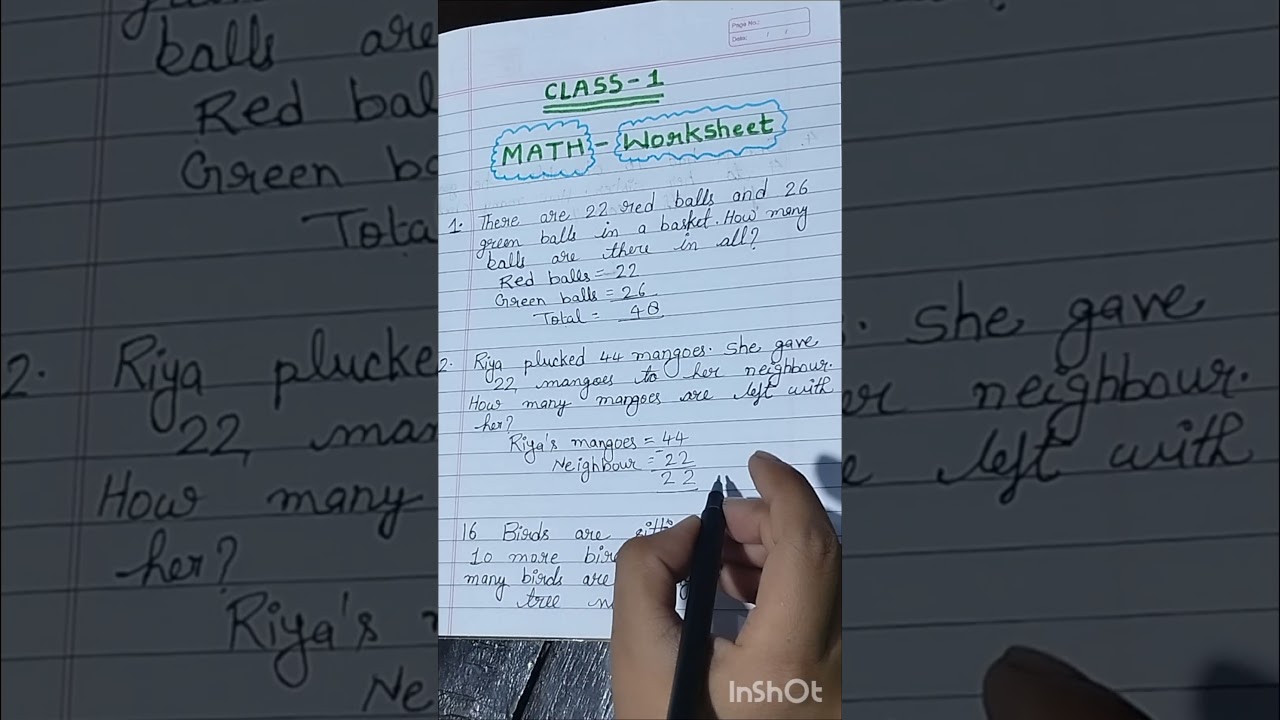 Page No.:
Date: / /
CLASS-1
MATH - Worksheet
1. There are 22 red balls and 26
green balls in a basket. How many
balls are there in all?
Red balls = 22
Green balls = 26
Total = 48
2. Riya plucked 44 mangoes. She gave
22 mangoes to her neighbour.
How many mangoes are left with
her?
Riya's mangoes = 44
Neighbour = -22
22
16 Birds are
10 more
many birds are
tree
InShOt
balls are
Red
Green
2. Riya
22
How many
her?
Riya's
She gave
neighbour.
left with